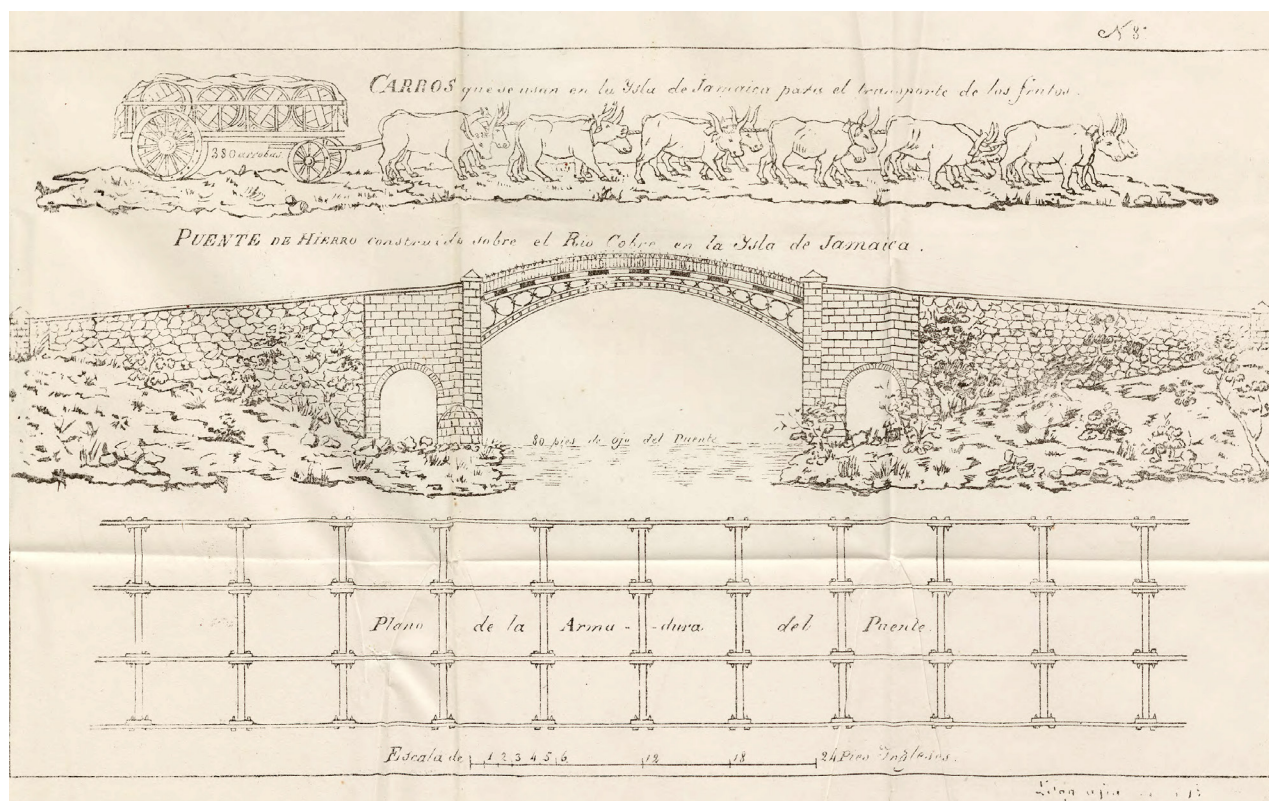 N 8º
CARROS que se usan en la Ysla de Jamaica para el transporte de los frutos.
380 arrobas
PUENTE DE HIERRO construido sobre el Rio Cobre en la Ysla de Jamaica.
80 pies de ojo del Puente
Plano de la Armu--dura del Puente.
Escala de 1 2 3 4 5 6 12 18 24 Pies Ingleses.